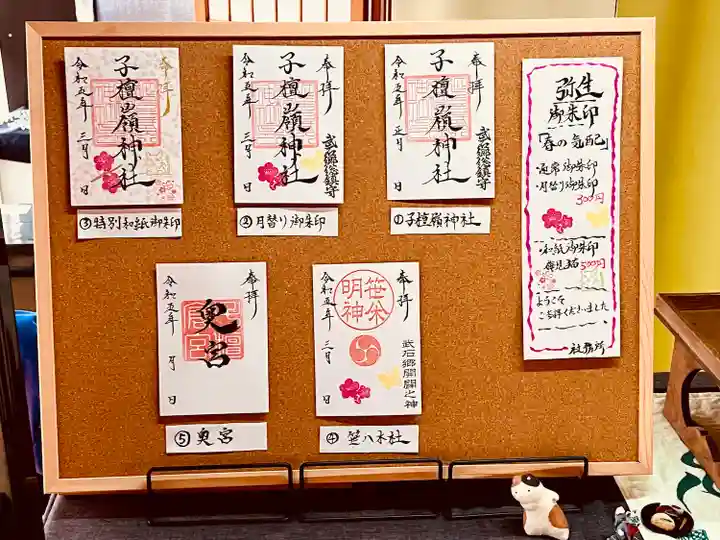 奉拝
子檀嶺神社
令和五年 三月 日
③特別和紙御朱印
奉拝
子檀嶺神社
武石総鎮守
令和五年 三月 日
②月替り御朱印
奉拝
子檀嶺神社
武石総鎮守
令和五年 正月 日
①子檀嶺神社
弥生
御朱印
「春の気配」
・通常御朱印
・月替り御朱印
300円
・和紙御朱印
500円
ようこそ
ご参拝くださいました
社務所
奉拝
奥宮
令和五年 月 日
⑤奥宮
奉拝
笹公
明神
武石郷開闢之神
令和五年 三月 日